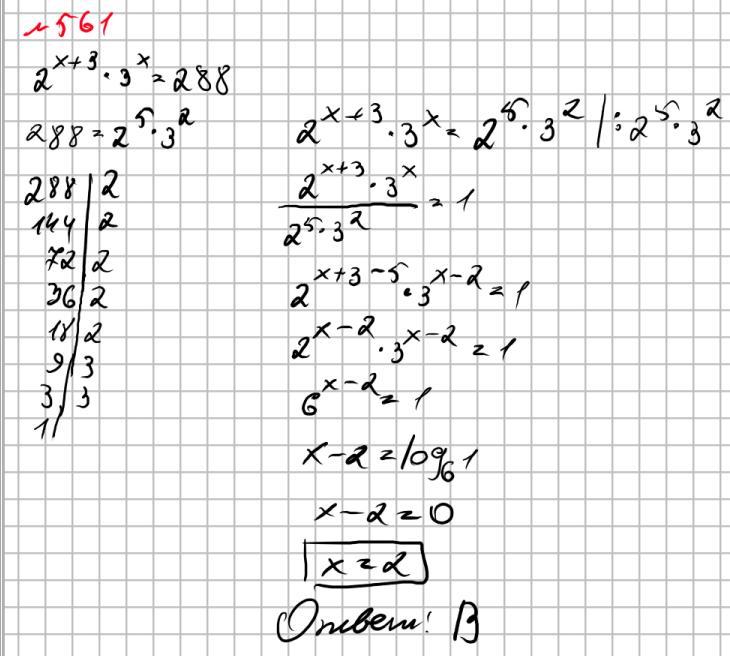 №561
2^{x+3} · 3^x = 288
288 = 2^5 · 3^2
288 | 2
144 | 2
72 | 2
36 | 2
18 | 2
9 | 3
3 | 3
1 |
2^{x+3} · 3^x = 2^5 · 3^2 | : 2^5 · 3^2
\frac{2^{x+3} · 3^x}{2^5 · 3^2} = 1
2^{x+3-5} · 3^{x-2} = 1
2^{x-2} · 3^{x-2} = 1
6^{x-2} = 1
x-2 = log_6 1
x-2 = 0
x = 2
Ответ: B